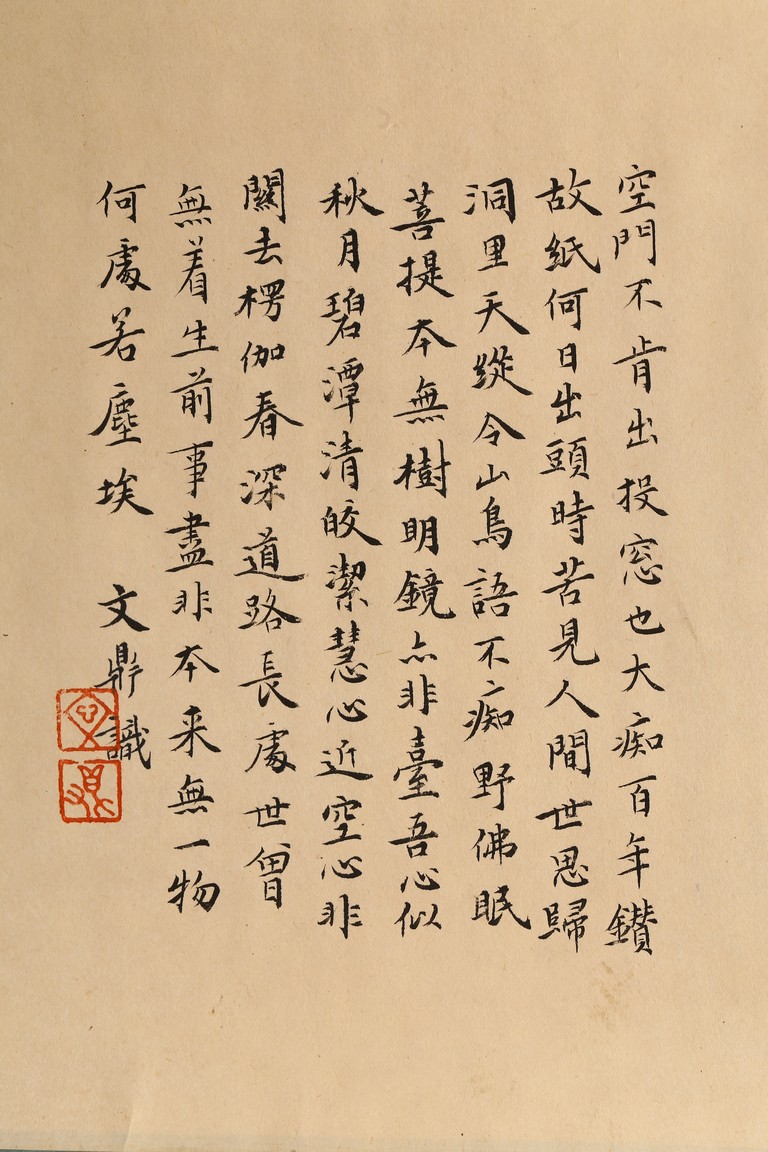 空門不肯出投窓也大痴百年鑚
故紙何日出頭時苦見人間世思歸
洞里天縱令山鳥語不痴野佛眠
菩提本無樹明鏡亦非臺吾心似
秋月碧潭清皎潔慧心近空心非
關去楞伽春深道路長處世曾
無着生前事盡非本来無一物
何處若塵埃 文鼎識